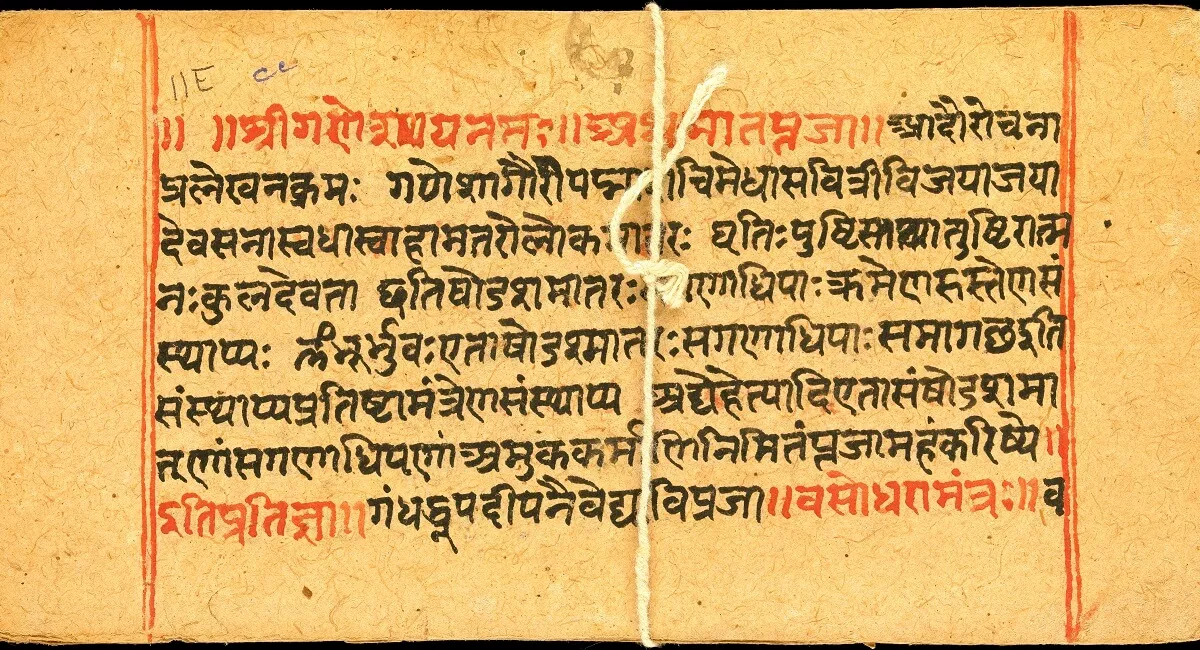 ॥E cc
॥ ॥श्रीगणेशायनमः॥अथ मातपूजा॥आदौरोचना
प्रलेखनक्रमः गणेशागौरीपद्मा चिमेधासावित्रीविजयाजया
देवसनास्वधास्वाहामातरोलोक तरः धृतिःपुष्टि तुष्टिरात्म
नःकुलदेवता इतिषोडशमातरः गणाधिपाःक्रमेणहस्तेणसं
स्थाप्यः ॐभूर्भुवःएताषोडशमातरःसगणाधिपाःसमागछइति
संस्थाप्यप्रतिष्टामंत्रेणसंस्थाप्य अद्येहेत्यादिएतासंषोडशमा
तृणांसगणाधिपणांअमुककर्माणिनिमितंपूजामहंकरिष्ये॥
इतिप्रतिज्ञा॥गंधधूपदीपनैवेद्य विपूजा॥वसोधरामंत्रः॥व